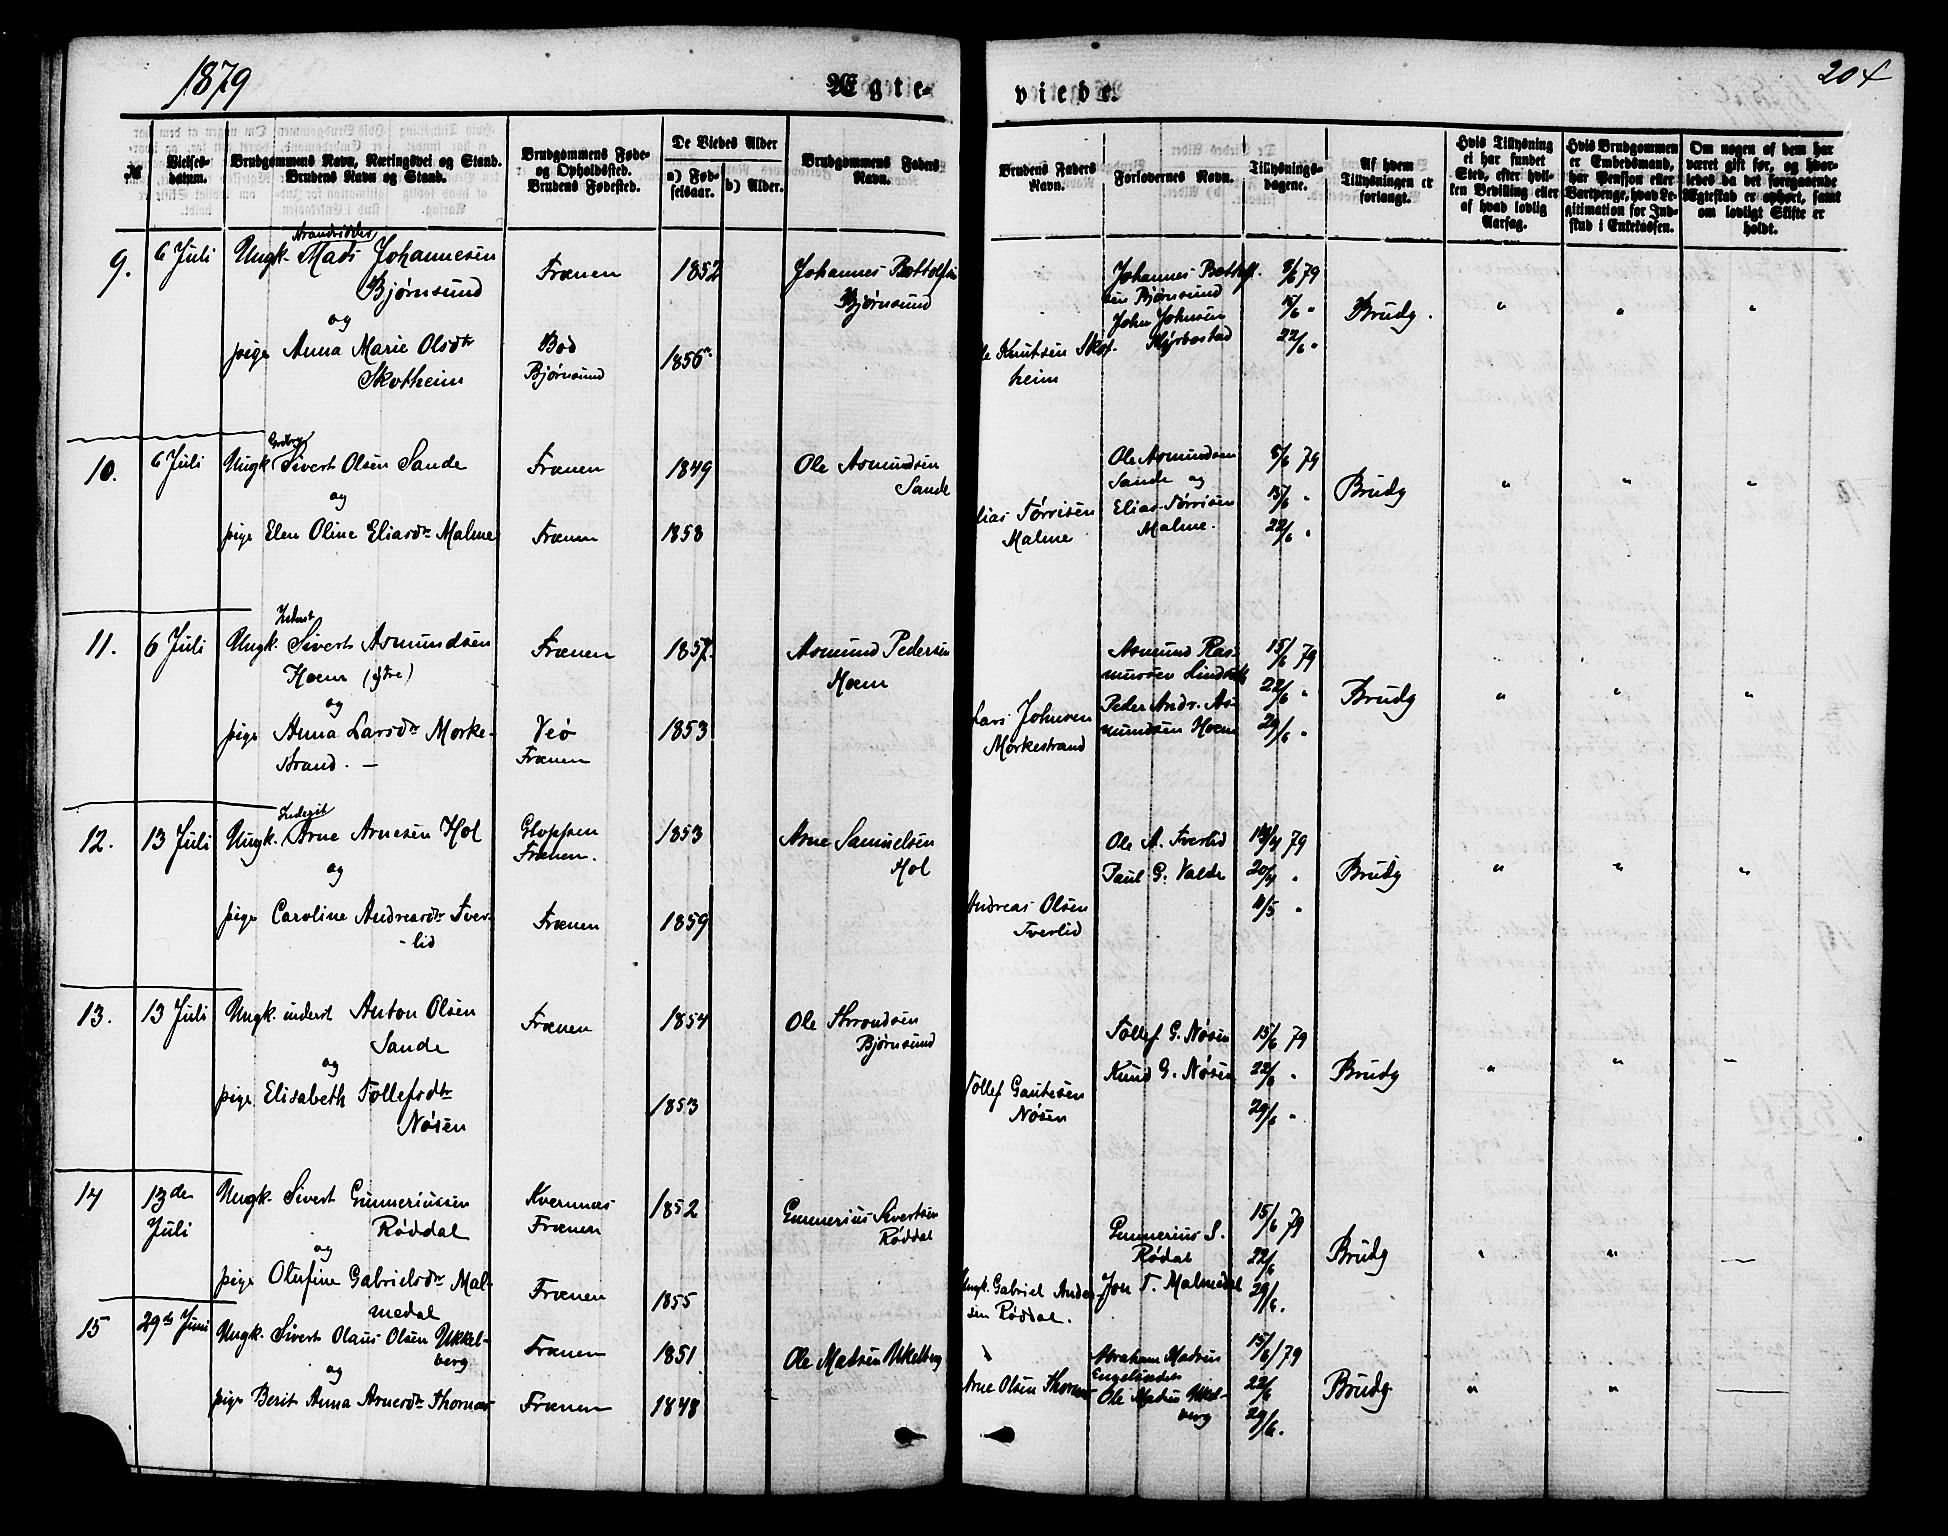 1879
Ægte-
viede.
204
№
Vielses-
datum.
Brudgommens Navn, Næringsvei og Stand.
Brudens Navn og Stand.
Brudgommens Føde-
og Opholdssted.
Brudens Fødested.
De Viedes Alder
a) Fød-
selsaar.
b) Alder.
Brudgommens Faders
Navn.
Brudens Faders
Navn.
Forlovernes Navn.
Tillysnings-
dagene.
Af hvem
Tillysningen er
forlangt.
Hvis Tillysning
ei har fundet
Sted, efter hvil-
ken Bevilling eller
af hvad lovlig
Aarsag.
Hvis Brudgommen
er Embedsmand,
har Pension eller
Vartpenge, hvad Le-
gitimation for Ind-
skud i Enkekassen.
Om nogen af dem har
været gift før, og hvor-
ledes da det foregaaende
Ægteskab er ophørt, samt
om lovligt Skifte er
holdt.
9.
6 Juli
Ungk. Mads Johannesen
Bjørnsund
og
pige Anna Marie Olsdtr
Skotheim
Frænen
Bod
Bjørnsund
1852
1856
Johannes Bottolfsen
Bjørnsund
Knutsen Skot-
heim
Johannes Bottolf-
sen Bjørnsund
John Johnsen
8/6 79
15/6 "
22/6 "
Brudg.
" " "
10.
6 Juli
Ungk. Sivert Olsen Sande
og
pige Elen Oline Eliasdtr Malme
Frænen
Frænen
1849
1858
Ole Asmundsen
Sande
Elias Tørrisen
Malme
Ole Asmundsen
Sande og
Elias Tørrisen
Malme.
8/6 79
15/6 "
22/6 "
Brudg
" " "
11.
6 Juli
Inderst
Ungk. Sivert Asmundsen
Hoem (ytre)
og
pige Anna Larsdtr Morke-
strand. —
Frænen
Veø
Frænen
1857.
1853
Asmund Pedersen
Hoem
Lars Johnsen
Morkestrand
Asmund Ras-
mussen
Peder Andr. As-
mundsen Hoem
15/6 79
22/6 "
29/6 "
Brudg
" " "
12.
13 Juli
Inderst
Ungk. Arne Arnesen Hol
og
pige Caroline Andreasdtr Tver-
-lid
Gloppen
Frænen.
Frænen
1853
1859
Arne Samuelsen
Hol
Andreas Olsen
Tverlid
Ole A. Tverlid
Paul G. Valde
79
20/4 "
/5 "
Brudg
" " "
13.
13 Juli
Ungk. inderst Anton Olsen
Sande
og
pige Elisabeth Tollefsdtr
Nøsen
Frænen
1854
1853
Ole Throndsen
Bjørnsund
Tollef Gautesen
Nøsen
Tollef. G. Nøsen
Knud G. Nøsen
15/6 79
22/6 "
29/6 "
Brudg
" " —
14
13de
Juli
Ungk. Sivert Gunneriussen
Røddal
og
pige Olufine Gabrielsdtr Mal-
medal
Kvernnes
Frænen
Frænen
1852
1855
Gunnerius Sivertsen
Røddal
Ungk. Gabriel Ander-
sen Røddal.
Gunnerius S.
Rødal
Jon T. Malmedal
15/6 79
22/6
29/6.
Brudg
" " —
15
29de Juni
Ungk. Sivert Olaus Olsen Ukkel-
berg
og
pige Berit Anna Arnesdtr Thornæs
Frænen
Frænen
1851
1848
Ole Matsen Ukelberg
Arne Olsen Thornæs
Abraham Madsen
Ole Matsen Ukkel-
berg
15/6 79
22/6
29/6.
Brudg
" " —